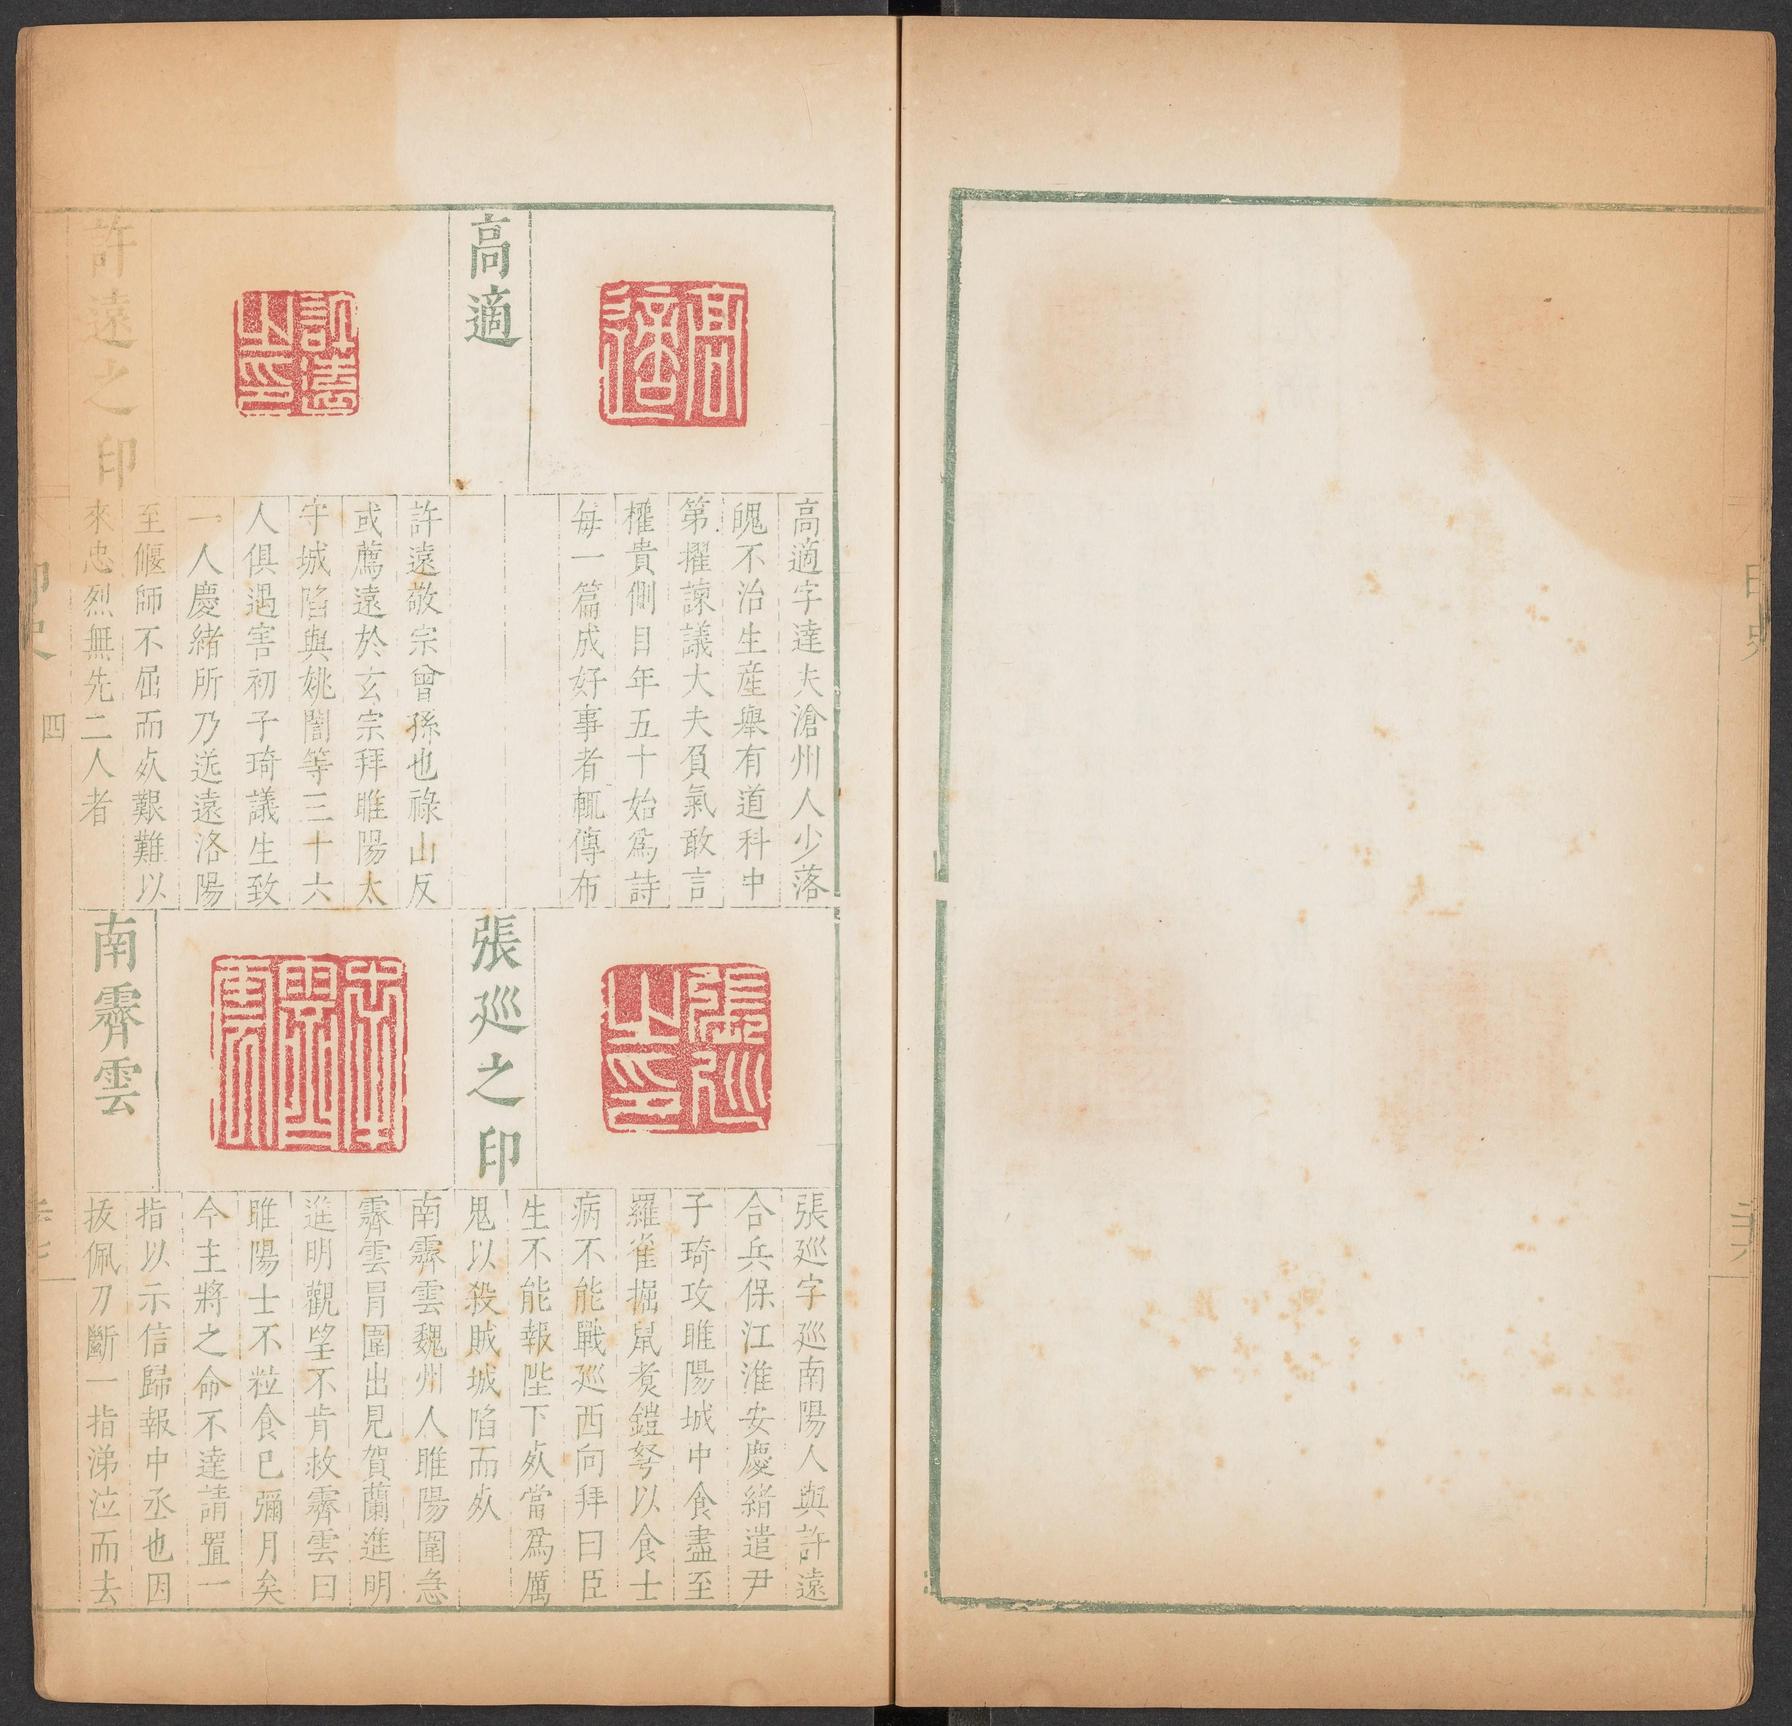 高適
高適字達夫滄州人少落
魄不治生產舉有道科中
第擢諫議大夫負氣敢言
權貴側目年五十始爲詩
每一篇成好事者輒傳布
許遠之印
許遠敬宗曾孫也祿山反
或薦遠於玄宗拜睢陽太
守城陷與姚誾等三十六
人俱遇害初子琦議生致
一人慶緒所乃送遠洛陽
至偃師不屈而死艱難以
來忠烈無先二人者
張巡之印
張巡字巡南陽人與許遠
合兵保江淮安慶緒遣尹
子琦攻睢陽城中食盡至
羅雀掘鼠煑鎧弩以食士
病不能戰巡西向拜曰臣
生不能報陛下死當爲厲
鬼以殺賊城陷而死
南霽雲
南霽雲魏州人睢陽圍急
霽雲冒圍出見賀蘭進明
進明觀望不肯救霽雲曰
睢陽士不粒食已彌月矣
今主將之命不達請置一
指以示信歸報中丞也因
拔佩刀斷一指涕泣而去
高適
許遠之印
張巡之印
南霽雲
印史
四